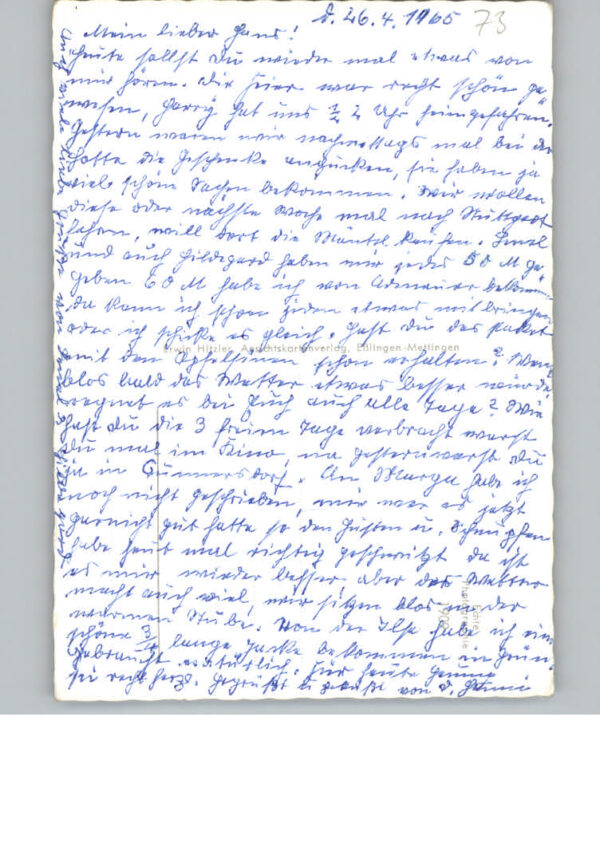 d. 26.4.1965 73
Mein lieber Hans!
Heute sollst du wieder mal etwas von
mir hören. Die Feier war recht schön ge-
wesen, Harry hat uns ½ 2 Uhr heimgefahren.
Gestern waren wir nachmittags mal bei der
Lotte die Geschenke angucken, sie haben ja
viele schöne Sachen bekommen. Wir wollen
diese oder nächste Woche mal nach Stuttgart
fahren, will dort die Mäntel kaufen.
und auch Hildegard haben mir jedes 50 M ge-
geben 60 M habe ich von Adenauer bekommen
da kann ich schon jeden etwas mitbringen
oder ich schicke es gleich. Hast du das Paket
Erwin Hitzler, Ansichtskartenverlag, Eßlingen-Mettingen
mit den Apfelsinen schon erhalten? Wenn
blos bald das Wetter etwas besser würde,
regnet es bei Euch auch alle Tage? Wie
hast du die 3 freien Tage verbracht warst
du mal im Kino, na gestern warst du
ja in Cunnersdorf. An Marga habe ich
noch nicht geschrieben, mir war es jetzt
garnicht gut hatte so den Husten u. Schnupfen
habe heut mal richtig geschwitzt da ist
es mir wieder besser aber das Wetter
macht auch viel, wir sitzen blos in der
warmen Stube. Von der Ilse habe ich eine
schöne ¾ lange Jacke bekommen in Grün.
Gebraucht natürlich. Für heute genug
sei recht herzl. gegrüßt u. geküßt von d.
Echte
Photographie
Und viele liebe Grüße von